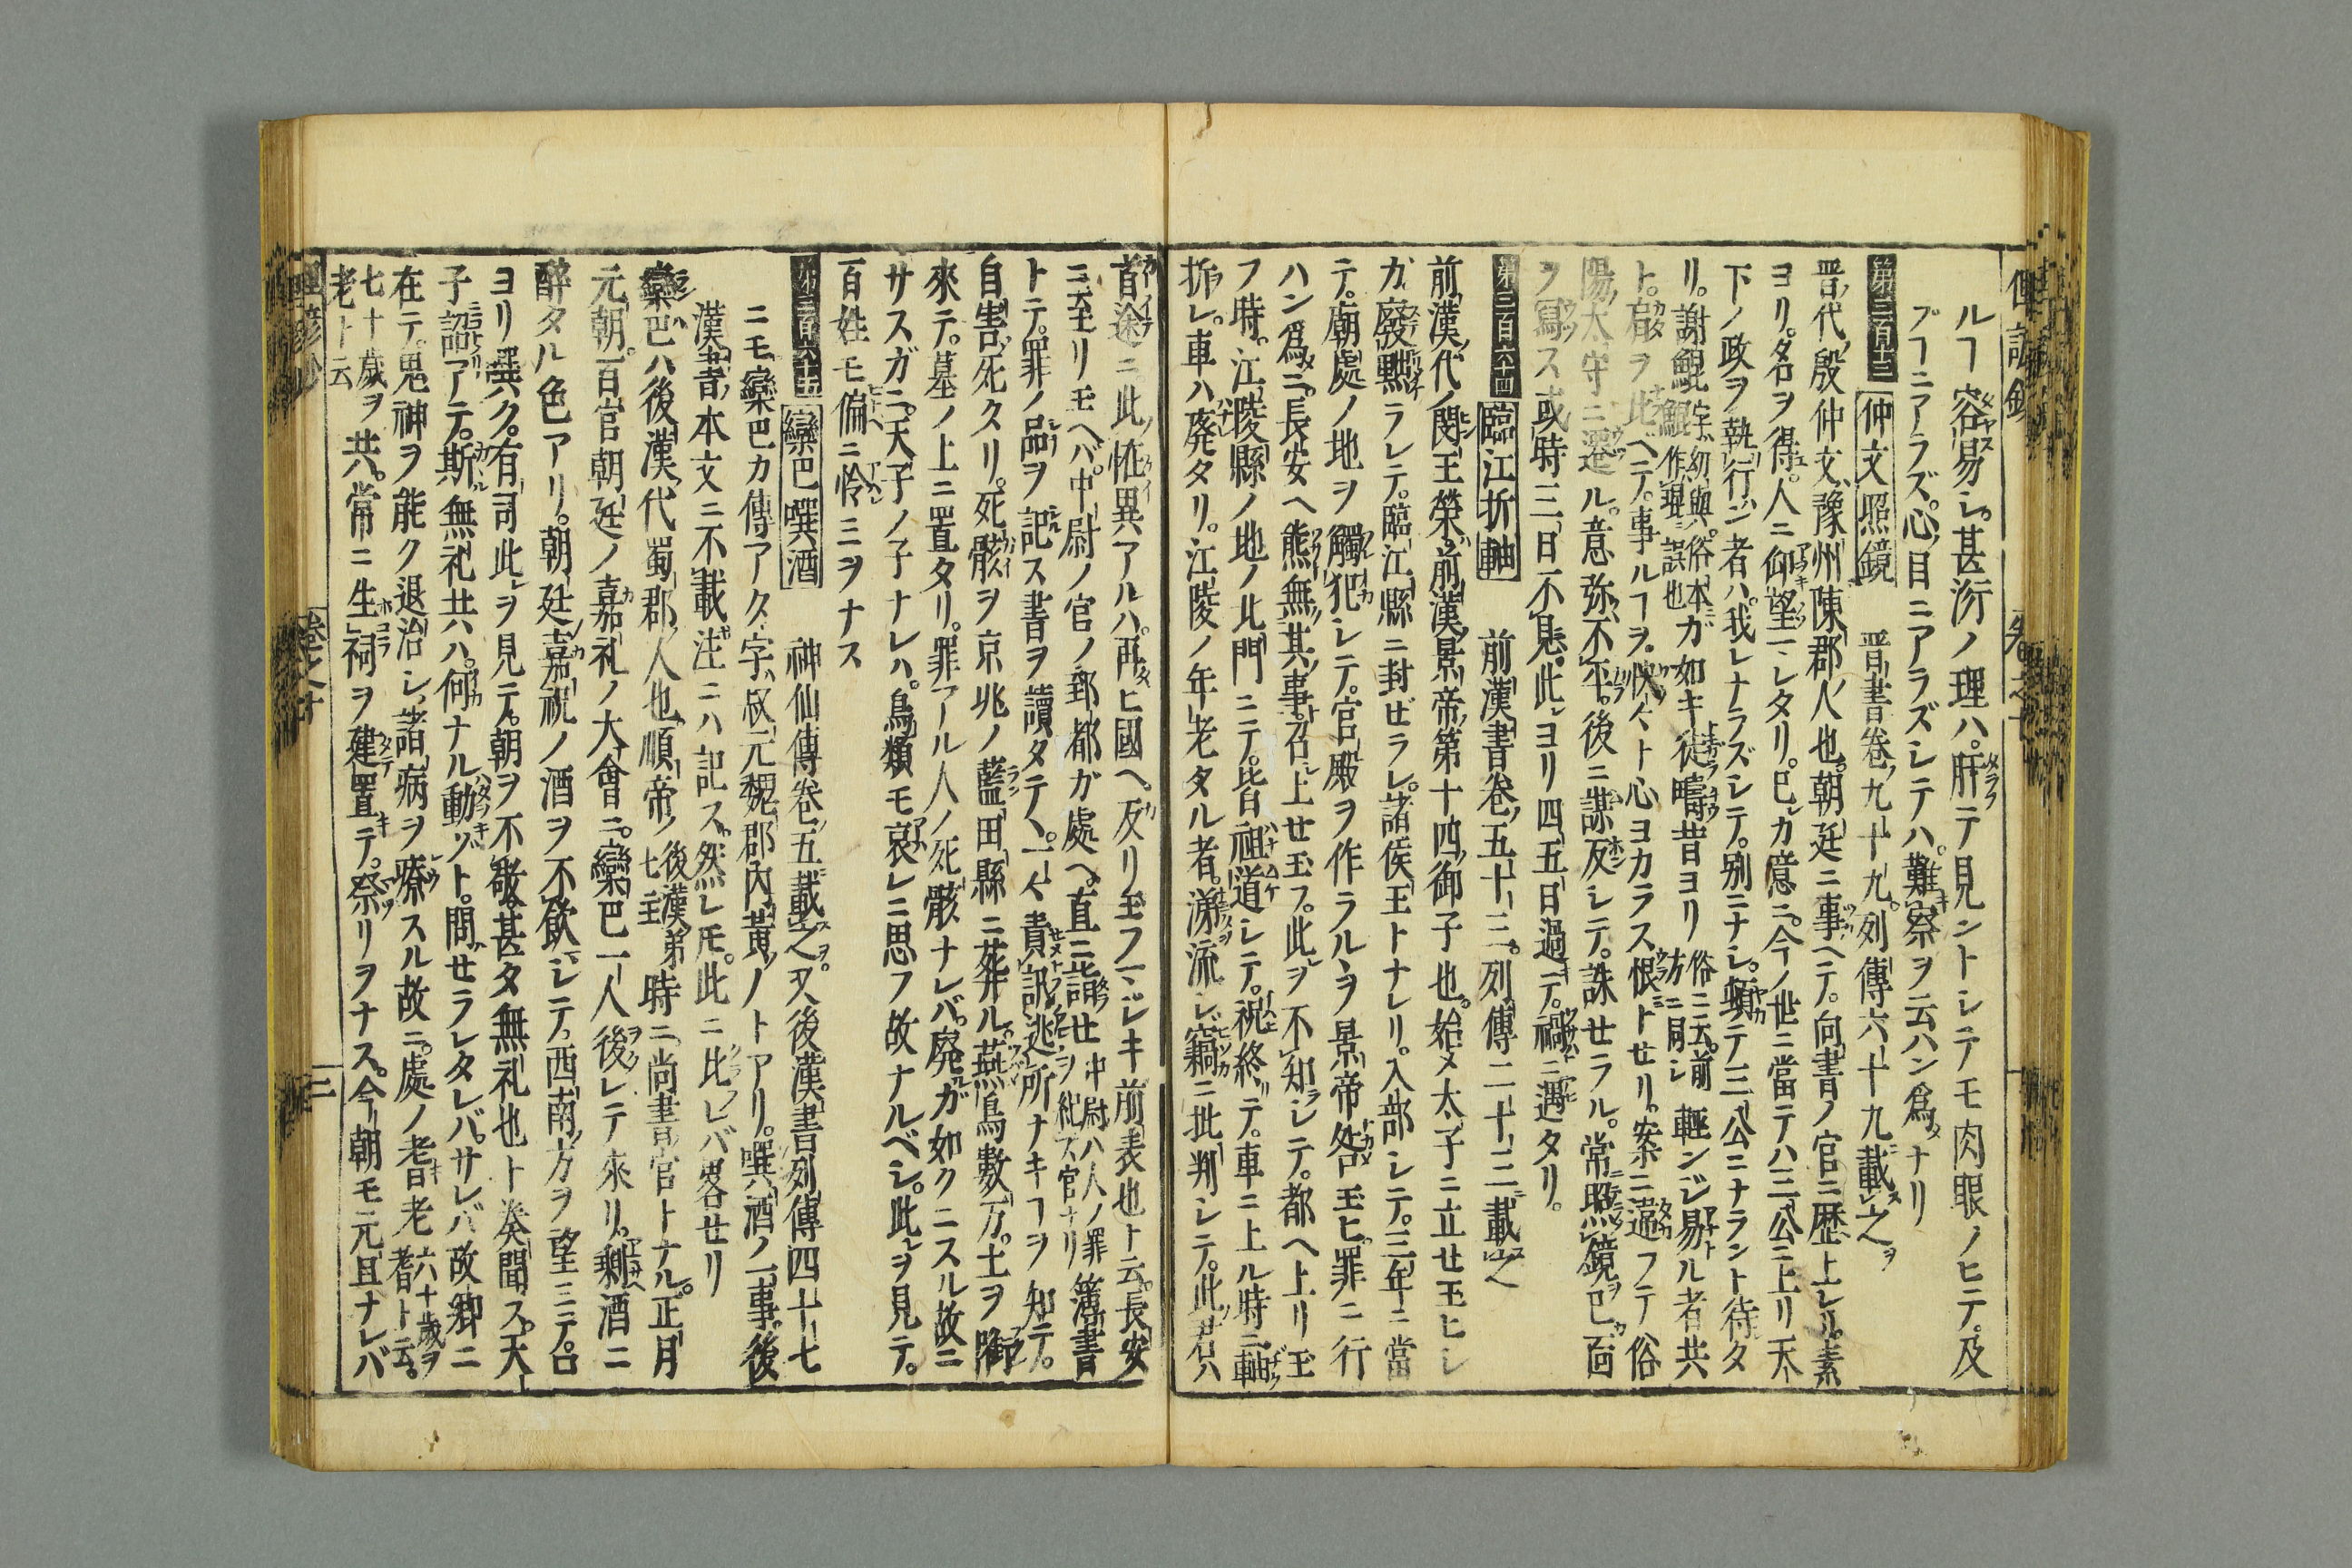 ルヿ容易シ。甚深ノ理ハ。肝テ見ントシテモ肉眼ノヒテ。及
ブヿニアラズ。心目ニアラズシテハ。難察ヲ云ハン爲ナリ
第三百六十三 仲文照鏡 晋書卷九十九。列傳六十九載之
晋代殷仲文。豫州陳郡人也。朝廷ニ事ヘテ。尚書ノ官ニ歴上レリ。素
ヨリ。名ヲ得。人ニ仰望ニレタリ。巳カ億ニ。今ノ世ニ當テハ三公ニ上リ天
下ノ政ヲ執行ン者ハ。我レナラズシテ。別ニナシ。頓テ三公ニナラント待タ
リ。謝鯤字ハ幼輿。俗本ニ鯤作琨誤也カ如キ徒。疇昔ヨリ俗ニ云。前方ニ同シ輕ンジ易トル者共
ト。肩ヲ比ヘテ。事ルヿヲ。快々ト心ヨカラス恨トセリ。案ニ違フテ俗
陽太守ニ遷ル。意弥不平。後ニ謀反シテ。誅セラル。常照鏡巳面
ヲ寫ス或時三日不見。此ヨリ四五日過テ。禍ニ遇タリ。
第三百六十四 臨江折軸 前漢書卷五十三。列傳二十三載之
前漢代ノ閔王榮。前漢景帝第十四御子也。始メ太子ニ立セ玉ヒシ
ガ。廢黜ラレテ。臨江縣ニ封ゼラレ。諸侯王トナレリ。入部シテ。三年ニ當
テ。廟處ノ地ヲ觸犯シテ。官殿ヲ作ラルヽヲ景帝咎玉ヒ。罪ニ行
ハン爲ニ。長安ヘ熊無其事。召上セ玉フ。此ヲ不知シテ。都ヘ上リ玉
フ時。江陵縣ノ地ノ北門ニテ。皆祖道シテ。祝終テ。車ニ上ル時ニ軸
折レ。車ハ廃タリ。江陵ノ年老タル者。涕流シ竊ニ批判シテ。此君ハ
首途ニ。此恠異アルハ。再ヒ國ヘ。反リ玉フマジキ前表也ト云。長安
ニ至リモヘバ。中尉ノ官ノ郅都ガ處ヘ。直ニ詣セ中尉ハ人ノ罪ヲ糺ス官ナリ簿書
トテ。罪ノ品ヲ記ス書ヲ讀タテヽ。一々責訊逃所ナキヿヲ知テ。
自害死タリ。死骸ヲ京兆ノ藍田縣ニ葬ル。燕鳥數万。土ヲ啣
來テ。墓ノ上ニ置タリ。罪アル人ノ死骸ナレバ。廃ガ如クニスル故ニ
サスガニ。天子ノ子ナレハ。鳥類モ哀レニ思フ故ナルベシ。此ヲ見テ。
百姓モ偏ニ怜ミヲナス
第三百六十五 欒巴噀酒 神仙傳卷五載之。又後漢書列傳四十七
ニモ欒巴カ傳アク。字ハ叔元魏郡内黄ノトアリ。噀酒ノ一事。後
漢書本文ニ不載注ニハ記ス。然レ𪜈。此ニ比レバ畧セリ
欒巴ハ後漢代蜀郡人也。順帝後漢第七主時ニ。尚書官トナル。正月
元朝。百官朝廷ノ嘉礼ノ大會ニ。欒巴一人後レテ來リ。剩酒ニ
醉タル色アリ。朝廷嘉祝ノ酒ヲ不飲シテ。西南方ヲ望ミテ。口
ヨリ噀ク。有司此ヲ見テ。朝ヲ不敬。甚タ無礼也ト奏聞ス。天
子詔アテ。斯無礼共ハ。何ナル動ゾト。問セラレタレバ。サレバ故郷ニ
在テ。鬼神ヲ能ク退治シ。諸病ヲ療スル故ニ。處ノ耆老六十歳ヲ耆ト云。
七十歳ヲ老ト云共。常ニ生祠ヲ建置テ。祭リヲナス。今朝モ元旦ナレバ